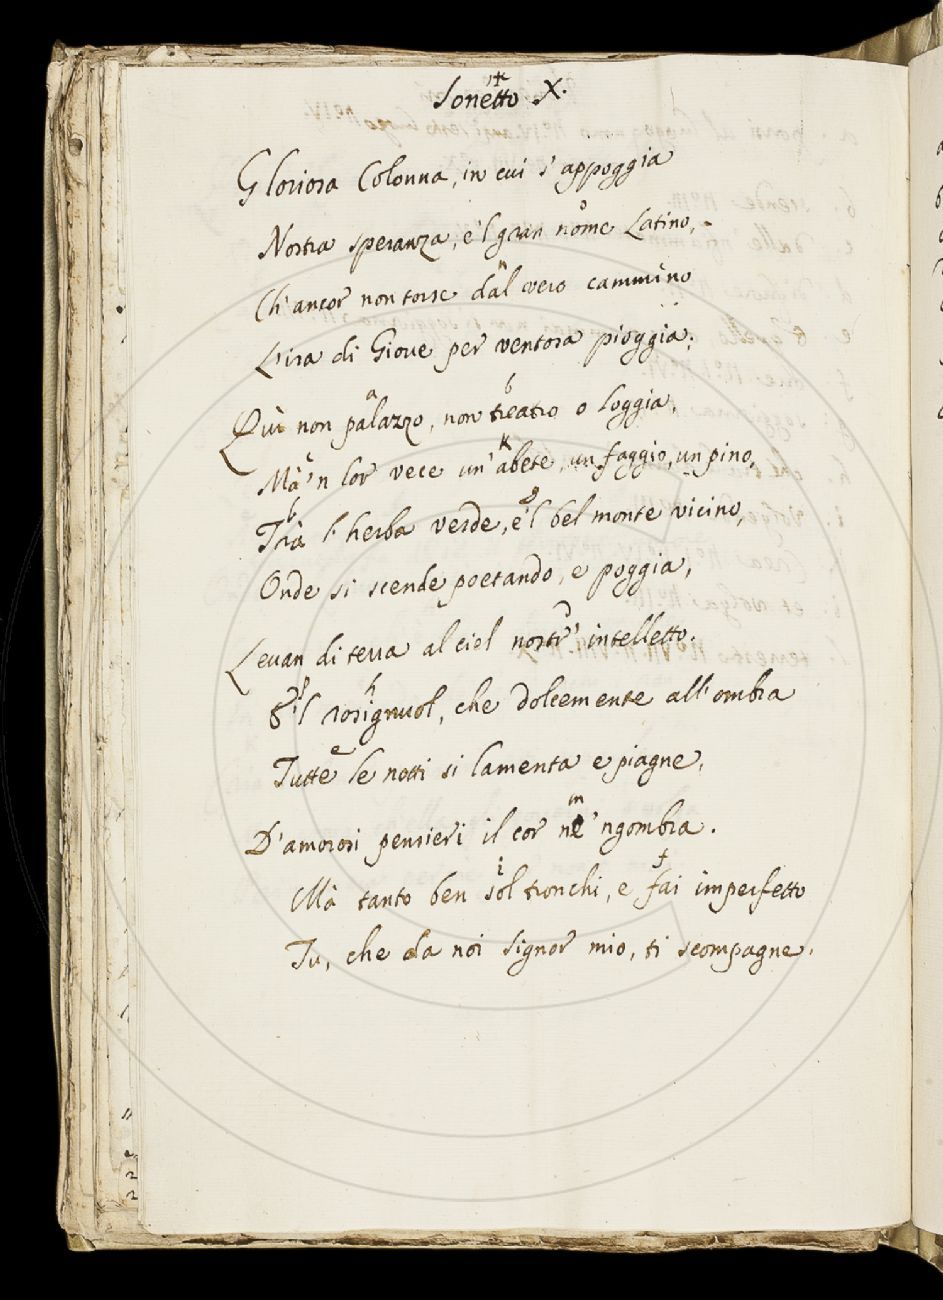 Sonetto X.
Gloriosa Colonna, in cui s'appoggia
Nostra speranza, e'l gran nome Latino,
Ch'ancor non torse dal vero cammino
L'ira di Giove per ventosa pioggia;
Quì non palazzo, non treatro o loggia,
Mà 'n lor vece un' abete, un faggio, un pino,
Trà l'herba verde, e'l bel monte vicino,
Onde si scende poetando, e poggia,
Levan di terra al ciel nostr' intelletto.
E'l rosignuol, che dolcemente all'ombra
Tutte le notti si lamenta e piagne,
D'amorosi pensieri il cor ne 'ngombra.
Mà tanto ben sol tronchi, e fai imperfetto
Tu, che da noi Signor mio, ti scompagne.